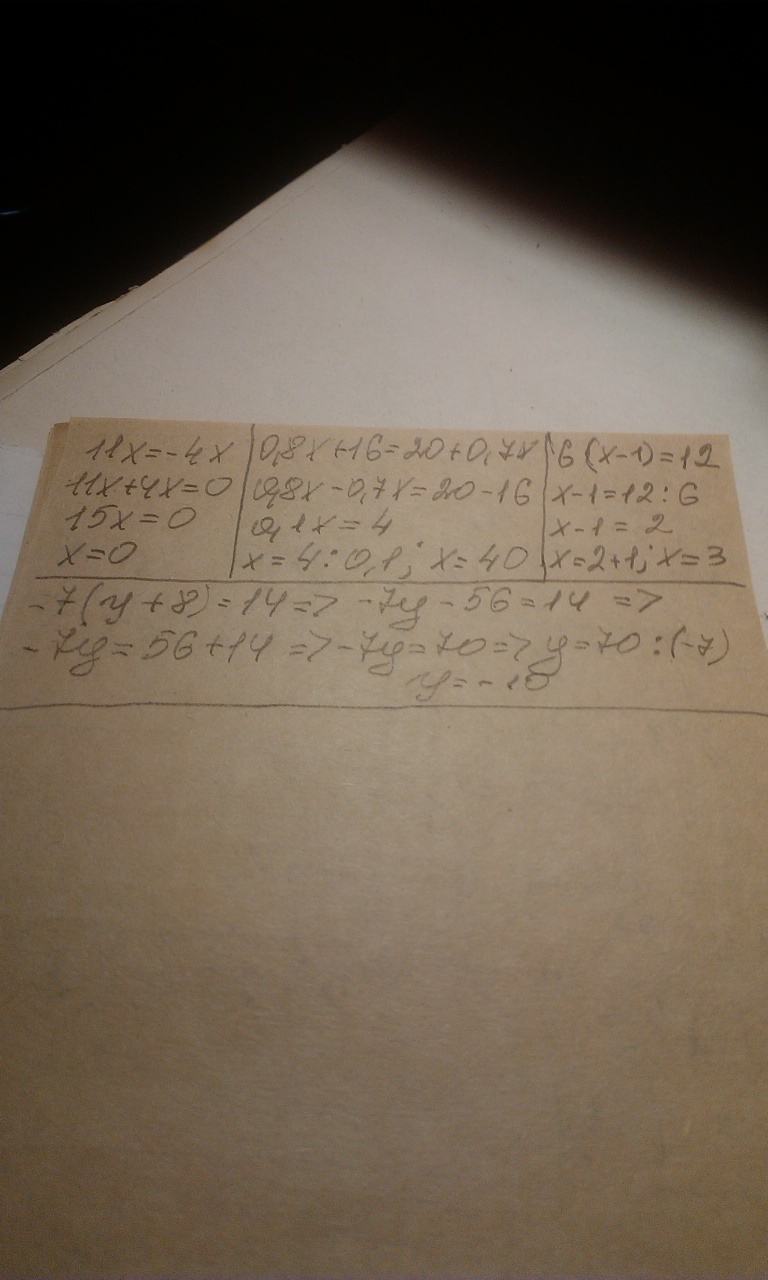 11x=-4x
11x+4x=0
15x=0
x=0
0,8x+16=20+0,7x
0,8x-0,7x=20-16
0,1x=4
x=4:0,1; x=40
6(x-1)=12
x-1=12:6
x-1=2
x=2+1; x=3
-7(y+8)=14=> -7y-56=14 =>
-7y=56+14 =>-7y=70=> y=70:(-7)
y=-10